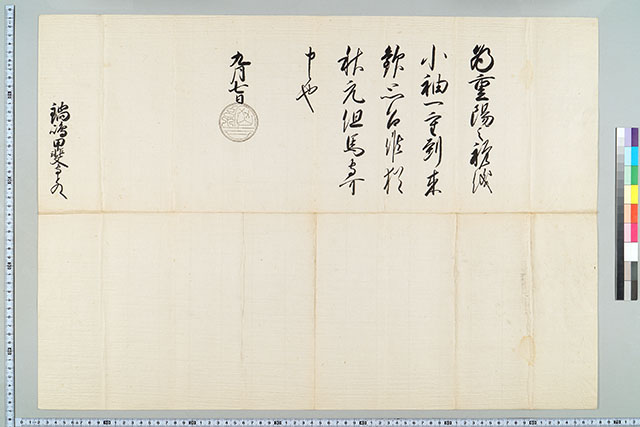 為重陽之祝儀
小袖一重到来
歓思召候猶
秋元但馬守可
申也
九月七日
鍋嶋甲斐守とのへ